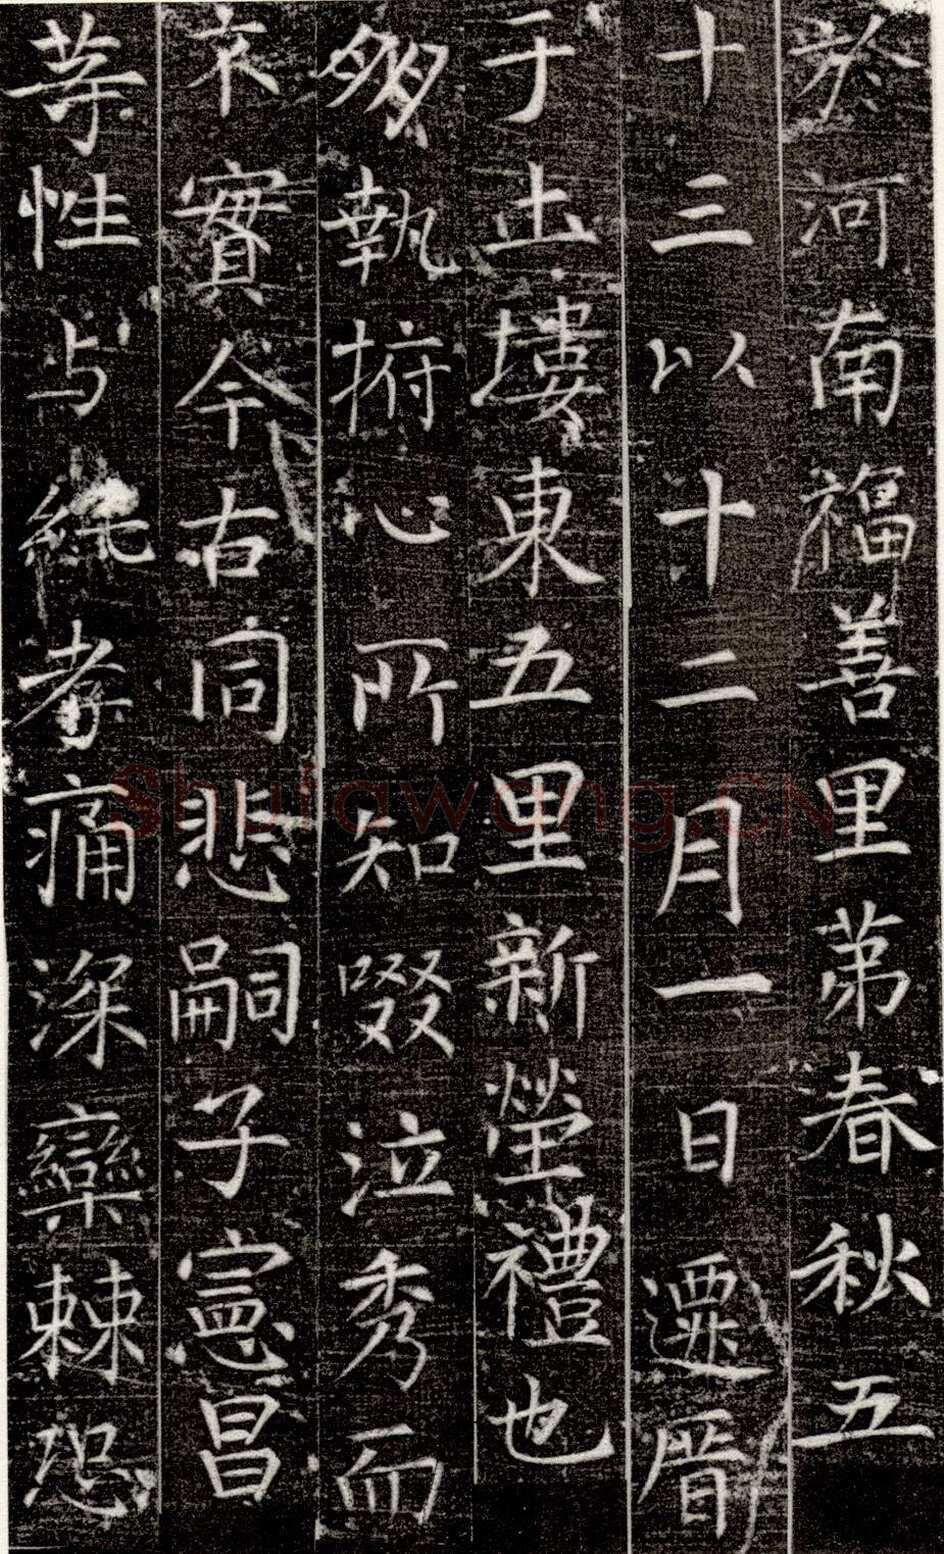 於河南福善里第春秋五
十三以十二月一日遷厝
于土塿東五里新塋禮也
夘執捬心所知啜泣秀而
不實今古同悲嗣子憲昌
荨性与純孝痛深欒棘恐
Shufawang.CN